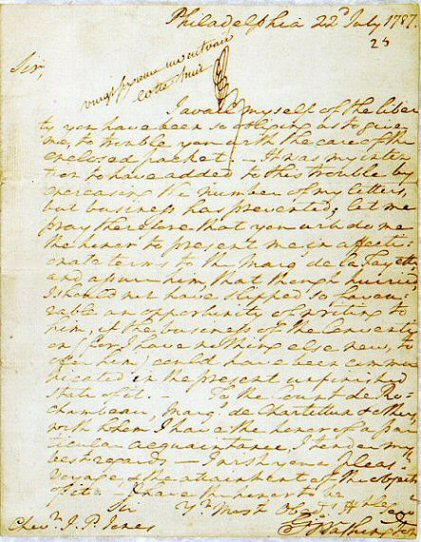 Philadelphia 22d July 1787.
23
Sir,
I avail myself of the liber
ty you have been so obliging as to give
me, to trouble you with the care of the
enclosed packet. — It was my inten
tion to have added to this trouble by
encreasing the number of my letters,
but business has prevented; let me
pray therefore that you will do me
the honor to present me in affecti-
onate terms to the Marq. de la Fayette
and assure him, that though hurried,
I should not have slipped so favour
able an opportunity of writing to
him, if the business of the Conventi
on (for I have nothing else new, to
offer him) could have been commu
nicated in the present unfinished
state of it. — To the Count de Ro-
chambeau, Marq. de Chartellux & others
with whom I have the honor of a par
ticular acquaintance, I tender my
best regards — I wish you a pleas
voyage, & the attainment of the objects
of it — I have the honor to be
Sir Yr Most Obedt Hble
Chevr J. P. Jones
G Washington